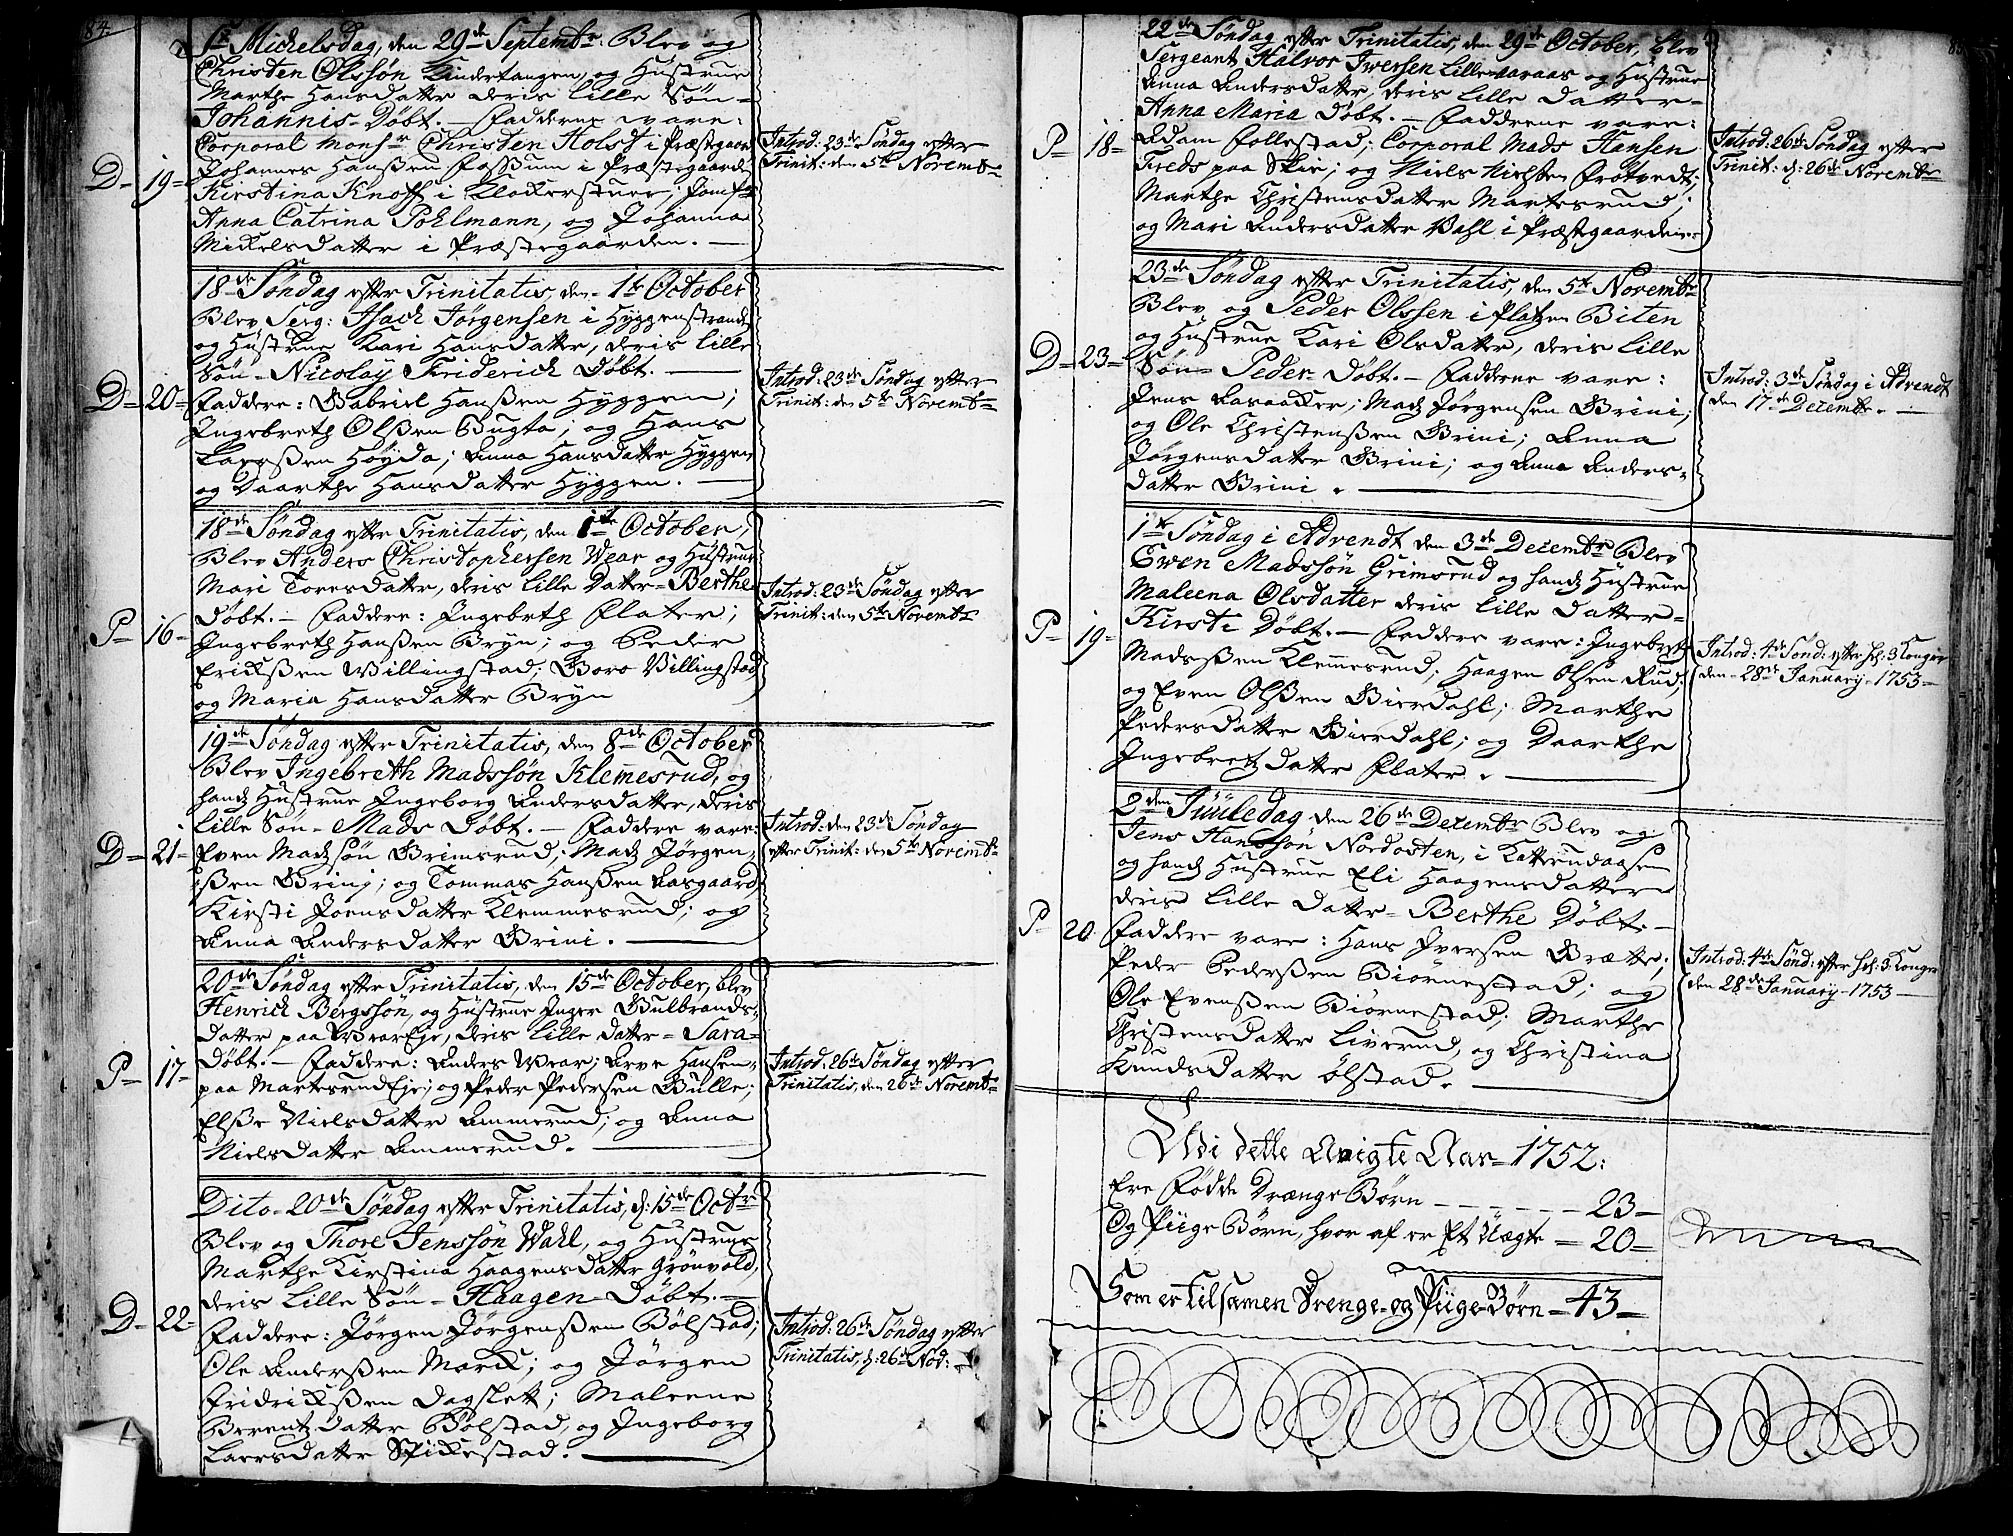 84.
St. Michelsdag, den 29de Septembr. Blev og
Christen Olssøn Kindertangen, og Hustrue
Marthe Hansdatter deris lille Søn-
Johannis- Døbt. — Fadderne vare:
Corporal Monsr Christen Holst i Præstegaard
Johannes Hanßen Foßum i Præstegaarden
D- 19- Kirstina Knoff i Klokerstuen; Jomfr
Anna Catrina Pohlmann, og Johanna
Mickelsdatter i Præstegaarden. —
Introd: 23de Søndag efter
Trinit: den 5te Novembr
18de Søndag efter Trinitatis, den 1te October
Blev Serg: Isach Jørgensen i Hyggenstrand
og Hustrue Kari Hansdatter, deris lille
Søn- Nicolay Friderich Døbt. —
D- 20- Faddere: Gabriel Hanßen Hyggen;
Ingebreth Olßen Bugta; og Hans
Larsßen Høyda; Anna Hansdatter Hyggen,
og Daarthe Hansdatter Hyggen. —
Introd: 23de Søndag efter
Trinit: den 5te Novembr
18de Søndag efter Trinitatis, den 1te October,
Blev Anders Christophersen Wear og Hustrue
Mari Toresdatter, deris lille Datter- Berthe
Døbt. — Faddere: Ingebreth Flater;
P- 16- Ingebreth Hanßen Bryn; og Peder
Erikßen Willingstad; Boro Villingstad
og Maria Hansdatter Bryn
Introd: 23de Søndag efter
Trinit: den 5te Novembr
19de Søndag efter Trinitatis, den 8de October
Blev Ingebreth Madssøn Klemesrud, og
hands Hustrue Ingeborg Andersdatter, deris
lille Søn- Mads Døbt. — Faddere vare:
D- 21- Even Madssøn Grimsrud; Mads Jørgen-
ßen Brini; og Tommas Hanßen Aasgaard
Kirsti Joensdatter Klemmesrud; og
Anna Andersdatter Brini. —
Introd: den 23de Søndag
efter Trinit: den 5te Novembr
20de Søndag efter Trinitatis, den 15de October, blev
Henrich Bergssøn, og Hustrue Inger Gulbrands-
datter paa WearEje, deris lille datter- Sara-
Døbt. — Faddere: Anders Wear; Arve Hansen-
P- 17- paa MartesrudEje; og Peder Pedersen Bulle;
Elße Nielsdatter Ammerud; og Anna
Nielsdatter Ammerud. —
Introd: 26de Søndag efter
Trinitatis, den 26de Novembr
Dito- 20de Søndag efter Trinitatis, d: 15de Octbr
Blev og Thore Jenssøn Wahl, og Hustrue
Marthe Kirstina Haagensdatter Grønvold,
deris lille Søn- Haagen- Døbt. —
D- 22- Faddere: Jørgen Jørgenßen Bølstad;
Ole Anderßen Mørk; og Jørgen
Fridrickßen Dagslett; Maleene
Berentzdatter Bølstad, og Ingeborg
Larsdatter Spikestad. —
Introd: 26de Søndag efter
Trinitatis, d: 26de Nov:
22de Søndag efter Trinitatis, den 29de October, blev
Sergeant Halvor Iwersen Lillewaraas og Hustrue
Anna Andersdatter, deris lille datter-
Anna Maria Døbt. — Fadderne vare:
P- 18- Adam Follestad; Corporal Mads Hansen
Freds paa Skie; og Niels Nielsßen Frøtvedt;
Marthe Christensdatter Martesrud;
og Mari Andersdatter Vahl i Præstegaarden
Introd: 26de Søndag efter
Trinit: d: 26de Novembr
23de Søndag efter Trinitatis, den 5te Novembr
Blev og Peder Olssen i Platzen Biten
og Hustrue Kari Olsdatter, deris lille
D- 23- Søn- Peder- Døbt. — Fadderne vare:
Jens Aasaaker; Mads Jørgensen Brini;
og Ole Christenßen Brini; Anna
Jørgensdatter Brini; og Anna Anders-
datter Brini. —
Introd: 3de Søndag i Advendt
den 17de Decembr. —
1te Søndag i Advendt den 3de Decembr Blev
Ewen Madssøn Grimsrud og hands Hustrue
Maleena Olsdatter deris lille datter-
Kirsti Døbt. — Faddere vare: Ingebreth
P- 19- Madsßen Klemmesrud; Haagen Olsen Rud;
og Even Olßen Bierdahl; Marthe
Pedersdatter Bierdahl; og Daarthe
Ingebretzdatter Flater. —
Introd: 4de Sønd: efter hel: 3 Konger
den- 28de January- 1753-
2den Juuledag den 26de Decembr Blev og
Jens Hanssøn Nordosten, i Katterudaasen
og hands Hustrue Eli Haagensdatter
deris lille datter- Berthe Døbt. —
P- 20 Faddere vare: Hans Iversen Brætte;
Peder Pederßen Biørnestad; og
Ole Evenßen Biørnestad; Marthe
Christensdatter Liverud, og Christina
Knudsdatter Ølstad. —
Introd: 4de Sønd: efter hel: 3 Konger
den 28de January- 1753 —
Udi dette Avigte Aar- 1752:
Ere Fødde Drænge Børn - - - - - - 23-
Og Piige Børn, hvor af er Et Uægte = 20=
Som er tilsamen Drenge- og Piige-Børn = 43-